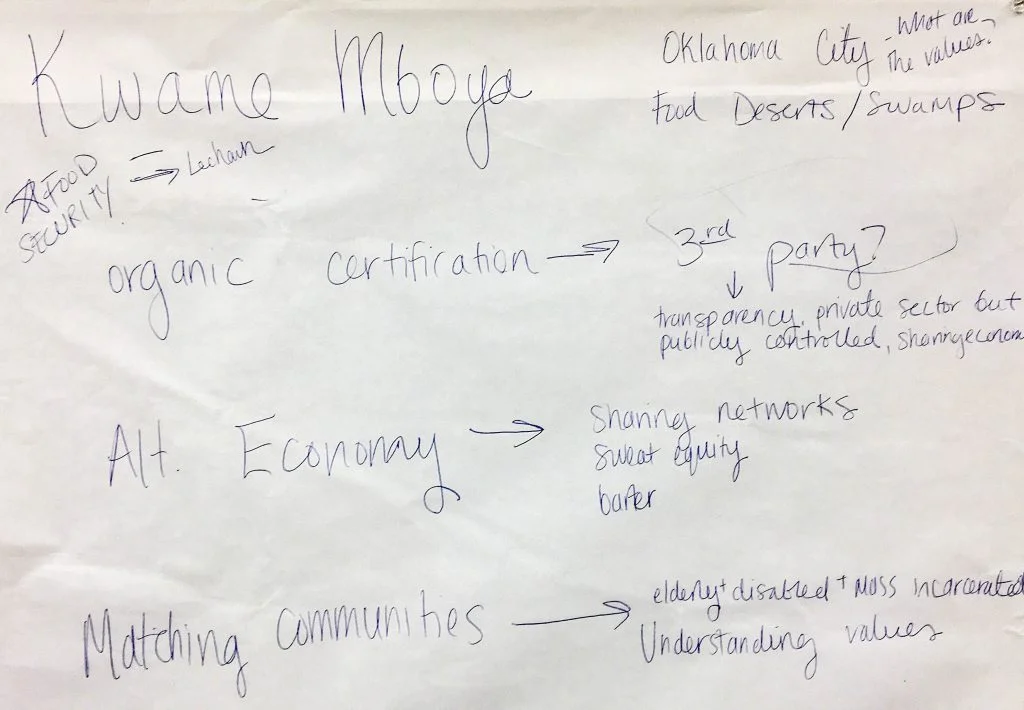 Kwame Mboya
Oklahoma City - What are
the values?
Food Deserts/Swamps
FOOD
SECURITY
organic certification → 3rd party?
↓
transparency, private sector but
publicly controlled, sharing econom
Alt. Economy → sharing networks
sweat equity
barter
Matching communities → elderly + disabled + mass incarcerated
Understanding values